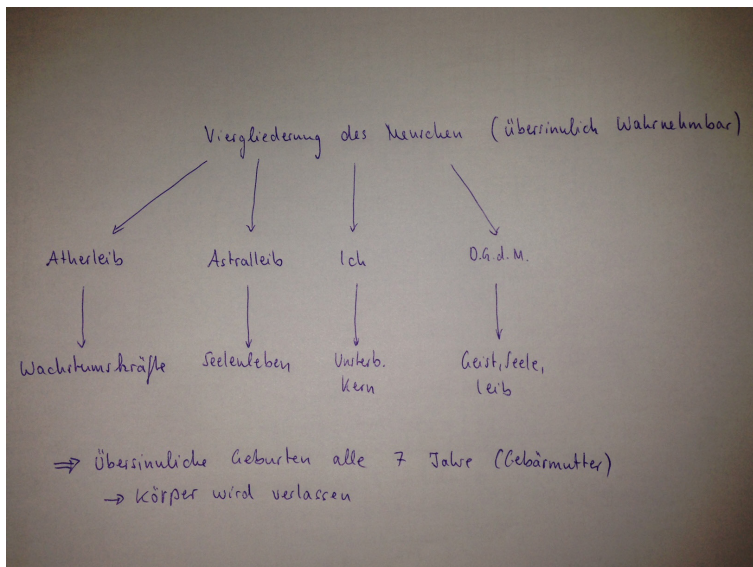 Viergliederung des Menschen (übersinnlich Wahrnehmbar)
Ätherleib Astralleib Ich D.G.d.M.
Wachstumskräfte Seelenleben Unsterb. Geist, Seele,
Kern Leib
⇒ Übersinnliche Geburten alle 7 Jahre (Gebärmutter)
→ Körper wird verlassen